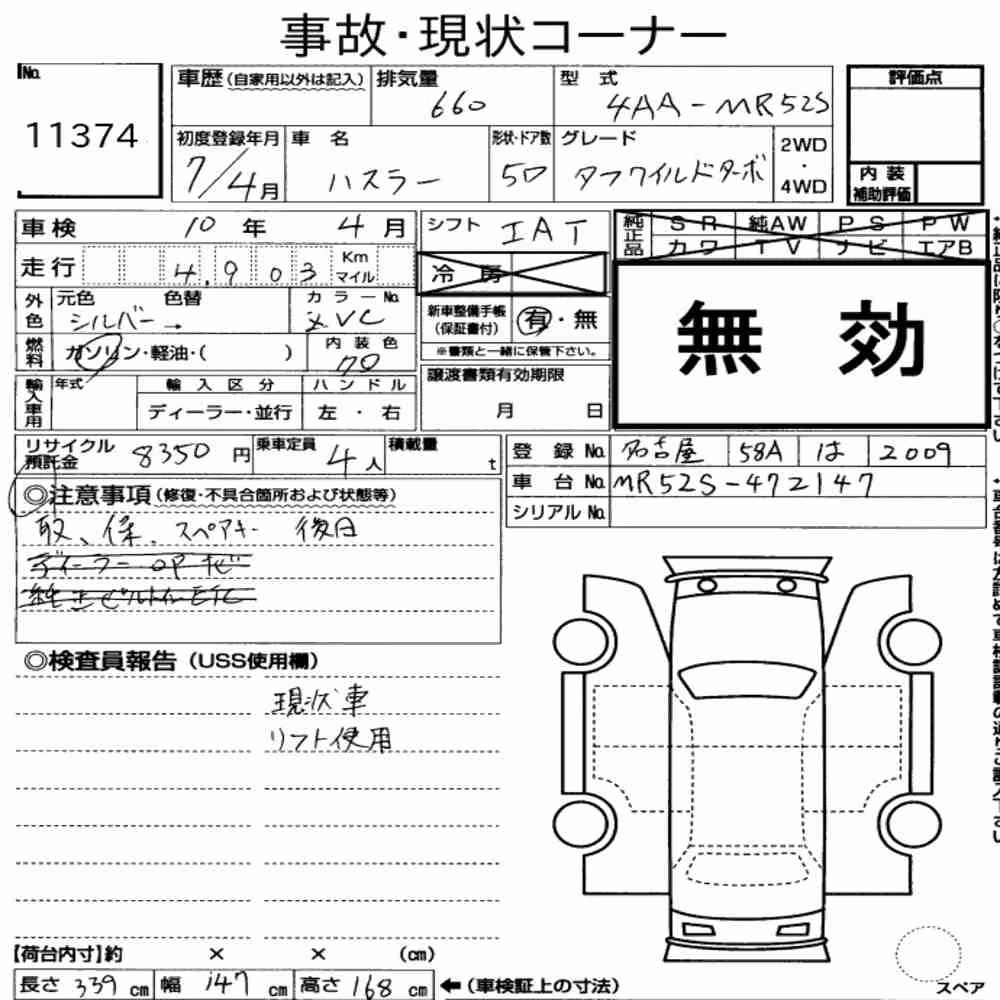 事故・現状コーナー
No. 11374
車歴(自家用以外は記入)
排気量 660
型式 4AA-MR52S
評価点
初度登録年月 7/4月
車名 ハスラー
形状・ドア数 5D
グレード タフワイルドターボ
2WD・4WD
内装補助評価
車検 10年4月
シフト IAT
純正品 SR 純AW PS PW
カワ TV ナビ エアB
走行 4.903 Km マイル
冷房
無効
外色 元色 シルバー→ 色替
カラーNo. ZVC
新車整備手帳(保証書付) 有・無
※書類と一緒に保管下さい。
燃料 ガソリン・軽油・( )
内装色 70
譲渡書類有効期限 月 日
輸入車用 年式 輸入区分 ハンドル
ディーラー・並行 左・右
リサイクル預託金 8350円
乗車定員 4人
積載量 t
登録No. 名古屋 58A は 2009
車台No. MR52S-472147
シリアルNo.
◎注意事項(修復・不具合箇所および状態等)
取、保、スペアキー 後日
ディーラーOPナビ
純正ビルトインETC
◎検査員報告(USS使用欄)
現状車
リフト使用
【荷台内寸】約 × × (cm)
長さ 339 cm 幅 147 cm 高さ 168 cm ←(車検証上の寸法)
スペア